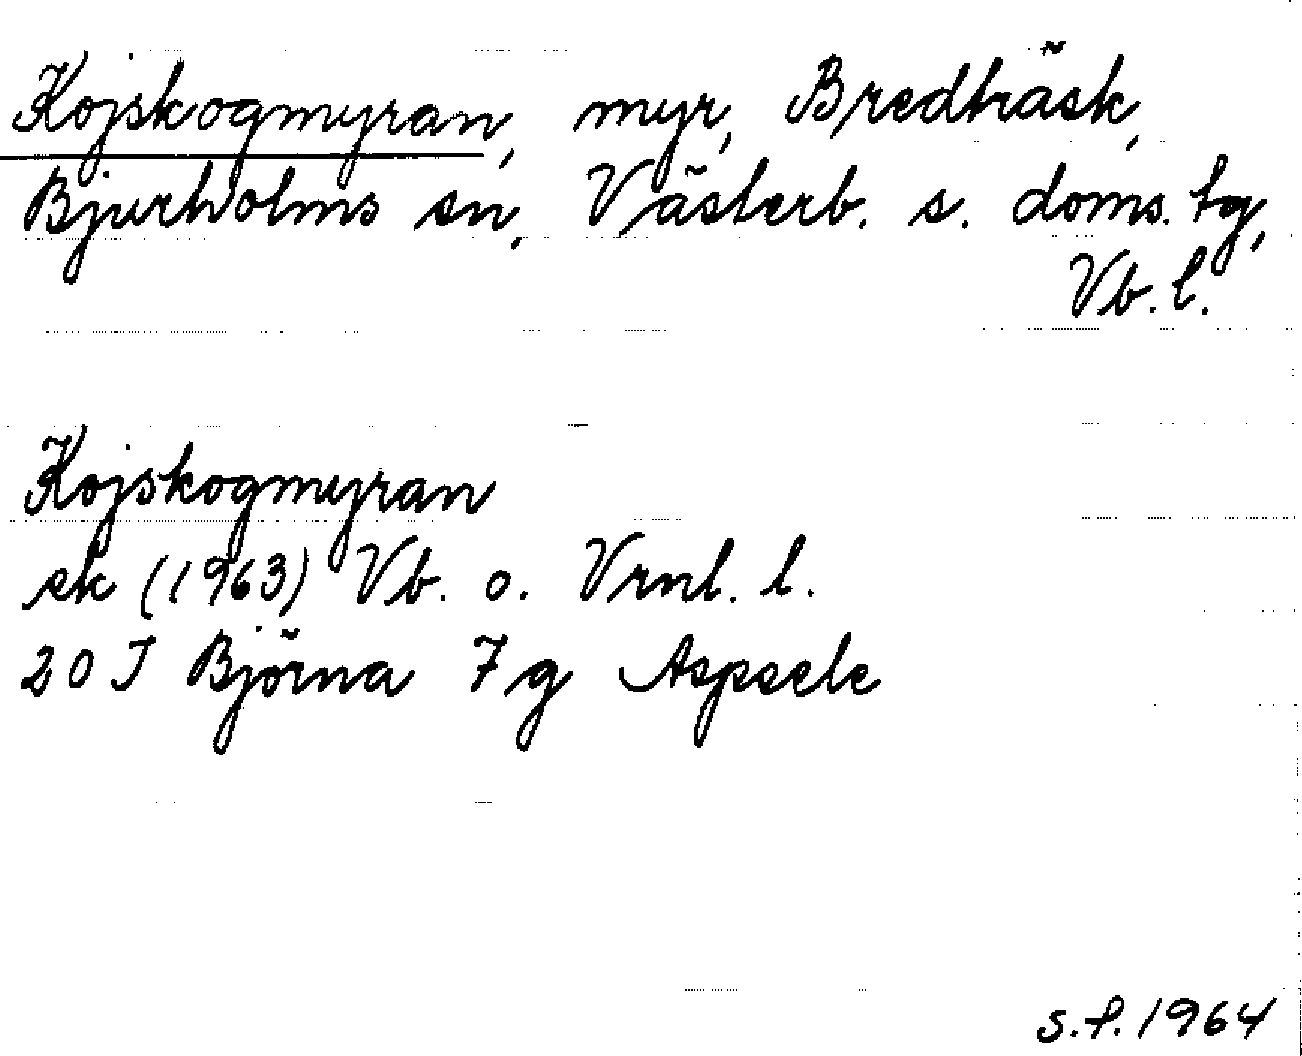 Kojskogmyran, myr, Bredträsk,
Bjurholms sn, Västerb. s. doms. tg,
Vb. l.
Kojskogmyran
ek (1963) Vb. o. Vrnl. l.
20 J Björna 7 g Aspsele
s.f. 1964